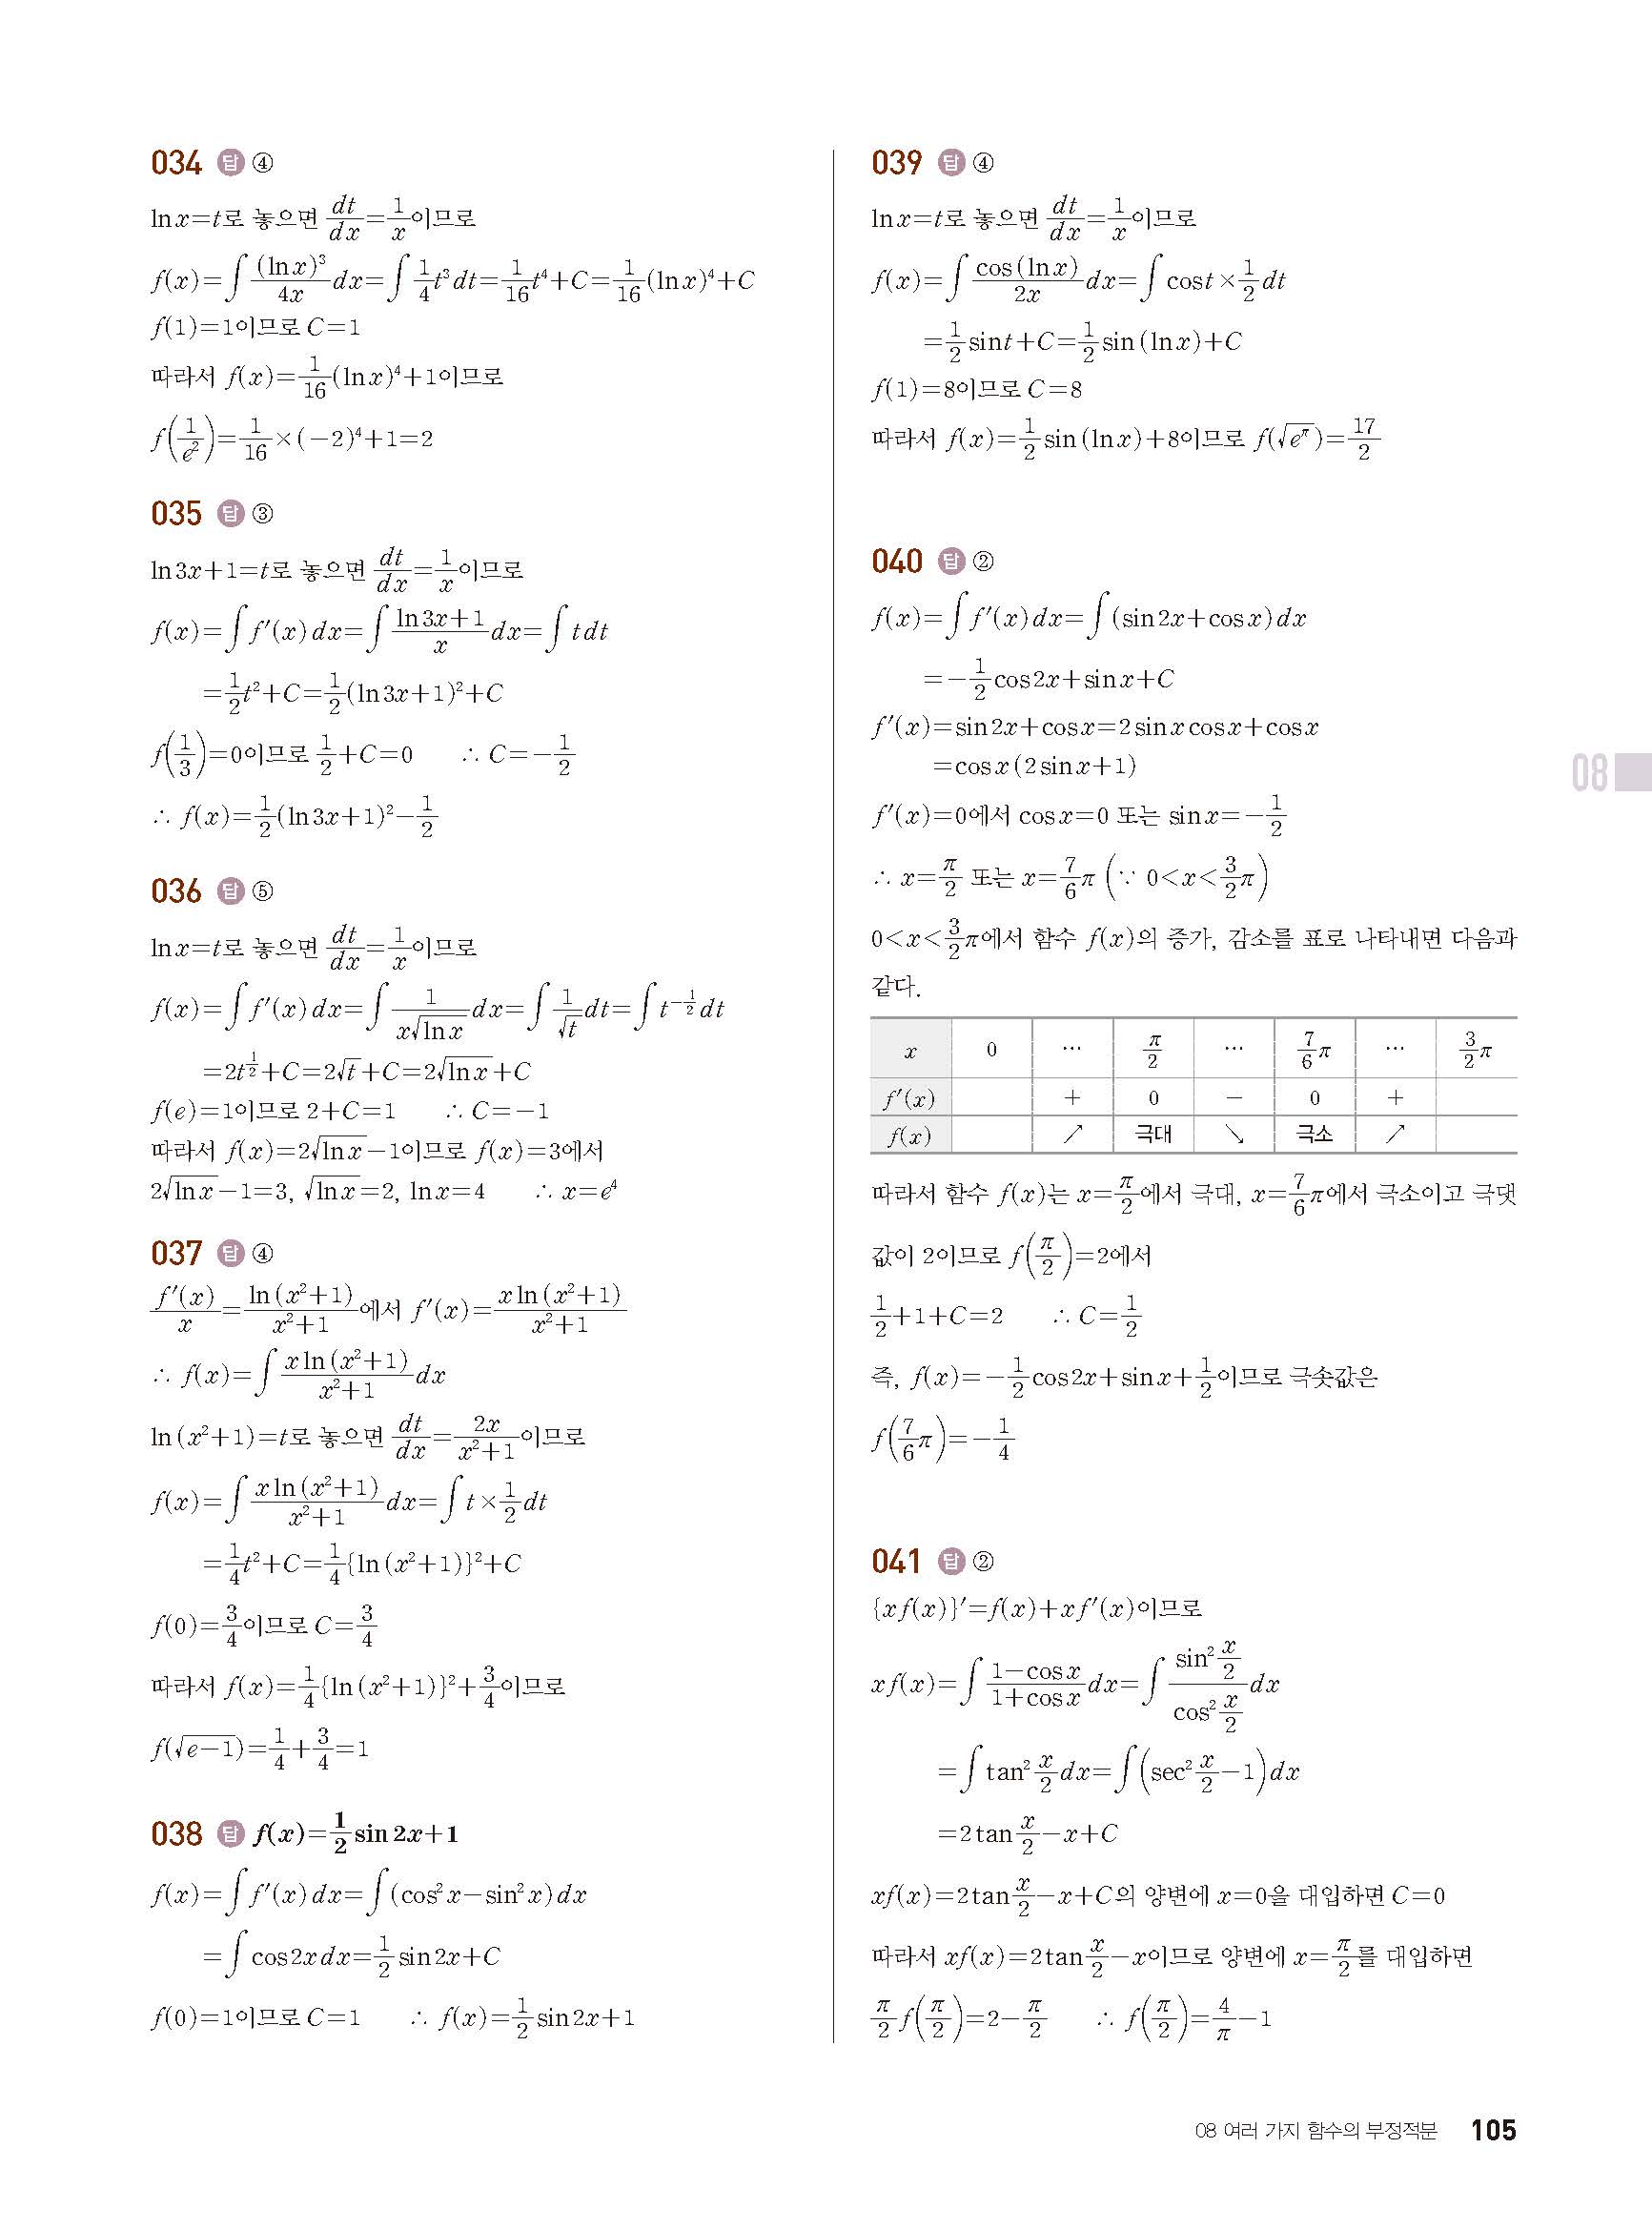 034 답 ④
ln x=t로 놓으면 dt/dx=1/x이므로
f(x)=∫(ln x)³/4x dx=∫1/4 t³dt=1/16 t⁴+C=1/16(ln x)⁴+C
f(1)=1이므로 C=1
따라서 f(x)=1/16(ln x)⁴+1이므로
f(1/e²)=1/16×(-2)⁴+1=2
035 답 ③
ln 3x+1=t로 놓으면 dt/dx=1/x이므로
f(x)=∫f′(x)dx=∫(ln 3x+1)/x dx=∫t dt
=1/2 t²+C=1/2(ln 3x+1)²+C
f(1/3)=0이므로 1/2+C=0 ∴ C=-1/2
∴ f(x)=1/2(ln 3x+1)²-1/2
036 답 ⑤
ln x=t로 놓으면 dt/dx=1/x이므로
f(x)=∫f′(x)dx=∫1/(x√(ln x)) dx=∫1/√t dt=∫t^(-1/2) dt
=2t^(1/2)+C=2√t+C=2√(ln x)+C
f(e)=1이므로 2+C=1 ∴ C=-1
따라서 f(x)=2√(ln x)-1이므로 f(x)=3에서
2√(ln x)-1=3, √(ln x)=2, ln x=4 ∴ x=e⁴
037 답 ④
f′(x)/x=ln(x²+1)/(x²+1)에서 f′(x)=x ln(x²+1)/(x²+1)
∴ f(x)=∫x ln(x²+1)/(x²+1) dx
ln(x²+1)=t로 놓으면 dt/dx=2x/(x²+1)이므로
f(x)=∫x ln(x²+1)/(x²+1) dx=∫t×1/2 dt
=1/4 t²+C=1/4{ln(x²+1)}²+C
f(0)=3/4이므로 C=3/4
따라서 f(x)=1/4{ln(x²+1)}²+3/4이므로
f(√(e-1))=1/4+3/4=1
038 답 f(x)=1/2 sin 2x+1
f(x)=∫f′(x)dx=∫(cos²x-sin²x)dx
=∫cos 2x dx=1/2 sin 2x+C
f(0)=1이므로 C=1 ∴ f(x)=1/2 sin 2x+1
039 답 ④
ln x=t로 놓으면 dt/dx=1/x이므로
f(x)=∫cos(ln x)/2x dx=∫cos t×1/2 dt
=1/2 sin t+C=1/2 sin(ln x)+C
f(1)=8이므로 C=8
따라서 f(x)=1/2 sin(ln x)+8이므로 f(√(e^π))=17/2
040 답 ②
f(x)=∫f′(x)dx=∫(sin 2x+cos x)dx
=-1/2 cos 2x+sin x+C
f′(x)=sin 2x+cos x=2 sin x cos x+cos x
=cos x(2 sin x+1)
f′(x)=0에서 cos x=0 또는 sin x=-1/2
∴ x=π/2 또는 x=7/6 π (∵ 0<x<3/2 π)
0<x<3/2 π에서 함수 f(x)의 증가, 감소를 표로 나타내면 다음과
같다.
x 0 … π/2 … 7/6 π … 3/2 π
f′(x) + 0 - 0 +
f(x) ↗ 극대 ↘ 극소 ↗
따라서 함수 f(x)는 x=π/2에서 극대, x=7/6 π에서 극소이고 극댓
값이 2이므로 f(π/2)=2에서
1/2+1+C=2 ∴ C=1/2
즉, f(x)=-1/2 cos 2x+sin x+1/2이므로 극솟값은
f(7/6 π)=-1/4
041 답 ②
{xf(x)}′=f(x)+xf′(x)이므로
xf(x)=∫(1-cos x)/(1+cos x) dx=∫(sin² x/2)/(cos² x/2) dx
=∫tan² x/2 dx=∫(sec² x/2-1)dx
=2 tan x/2-x+C
xf(x)=2 tan x/2-x+C의 양변에 x=0을 대입하면 C=0
따라서 xf(x)=2 tan x/2-x이므로 양변에 x=π/2를 대입하면
π/2 f(π/2)=2-π/2 ∴ f(π/2)=4/π-1
08
08 여러 가지 함수의 부정적분 105